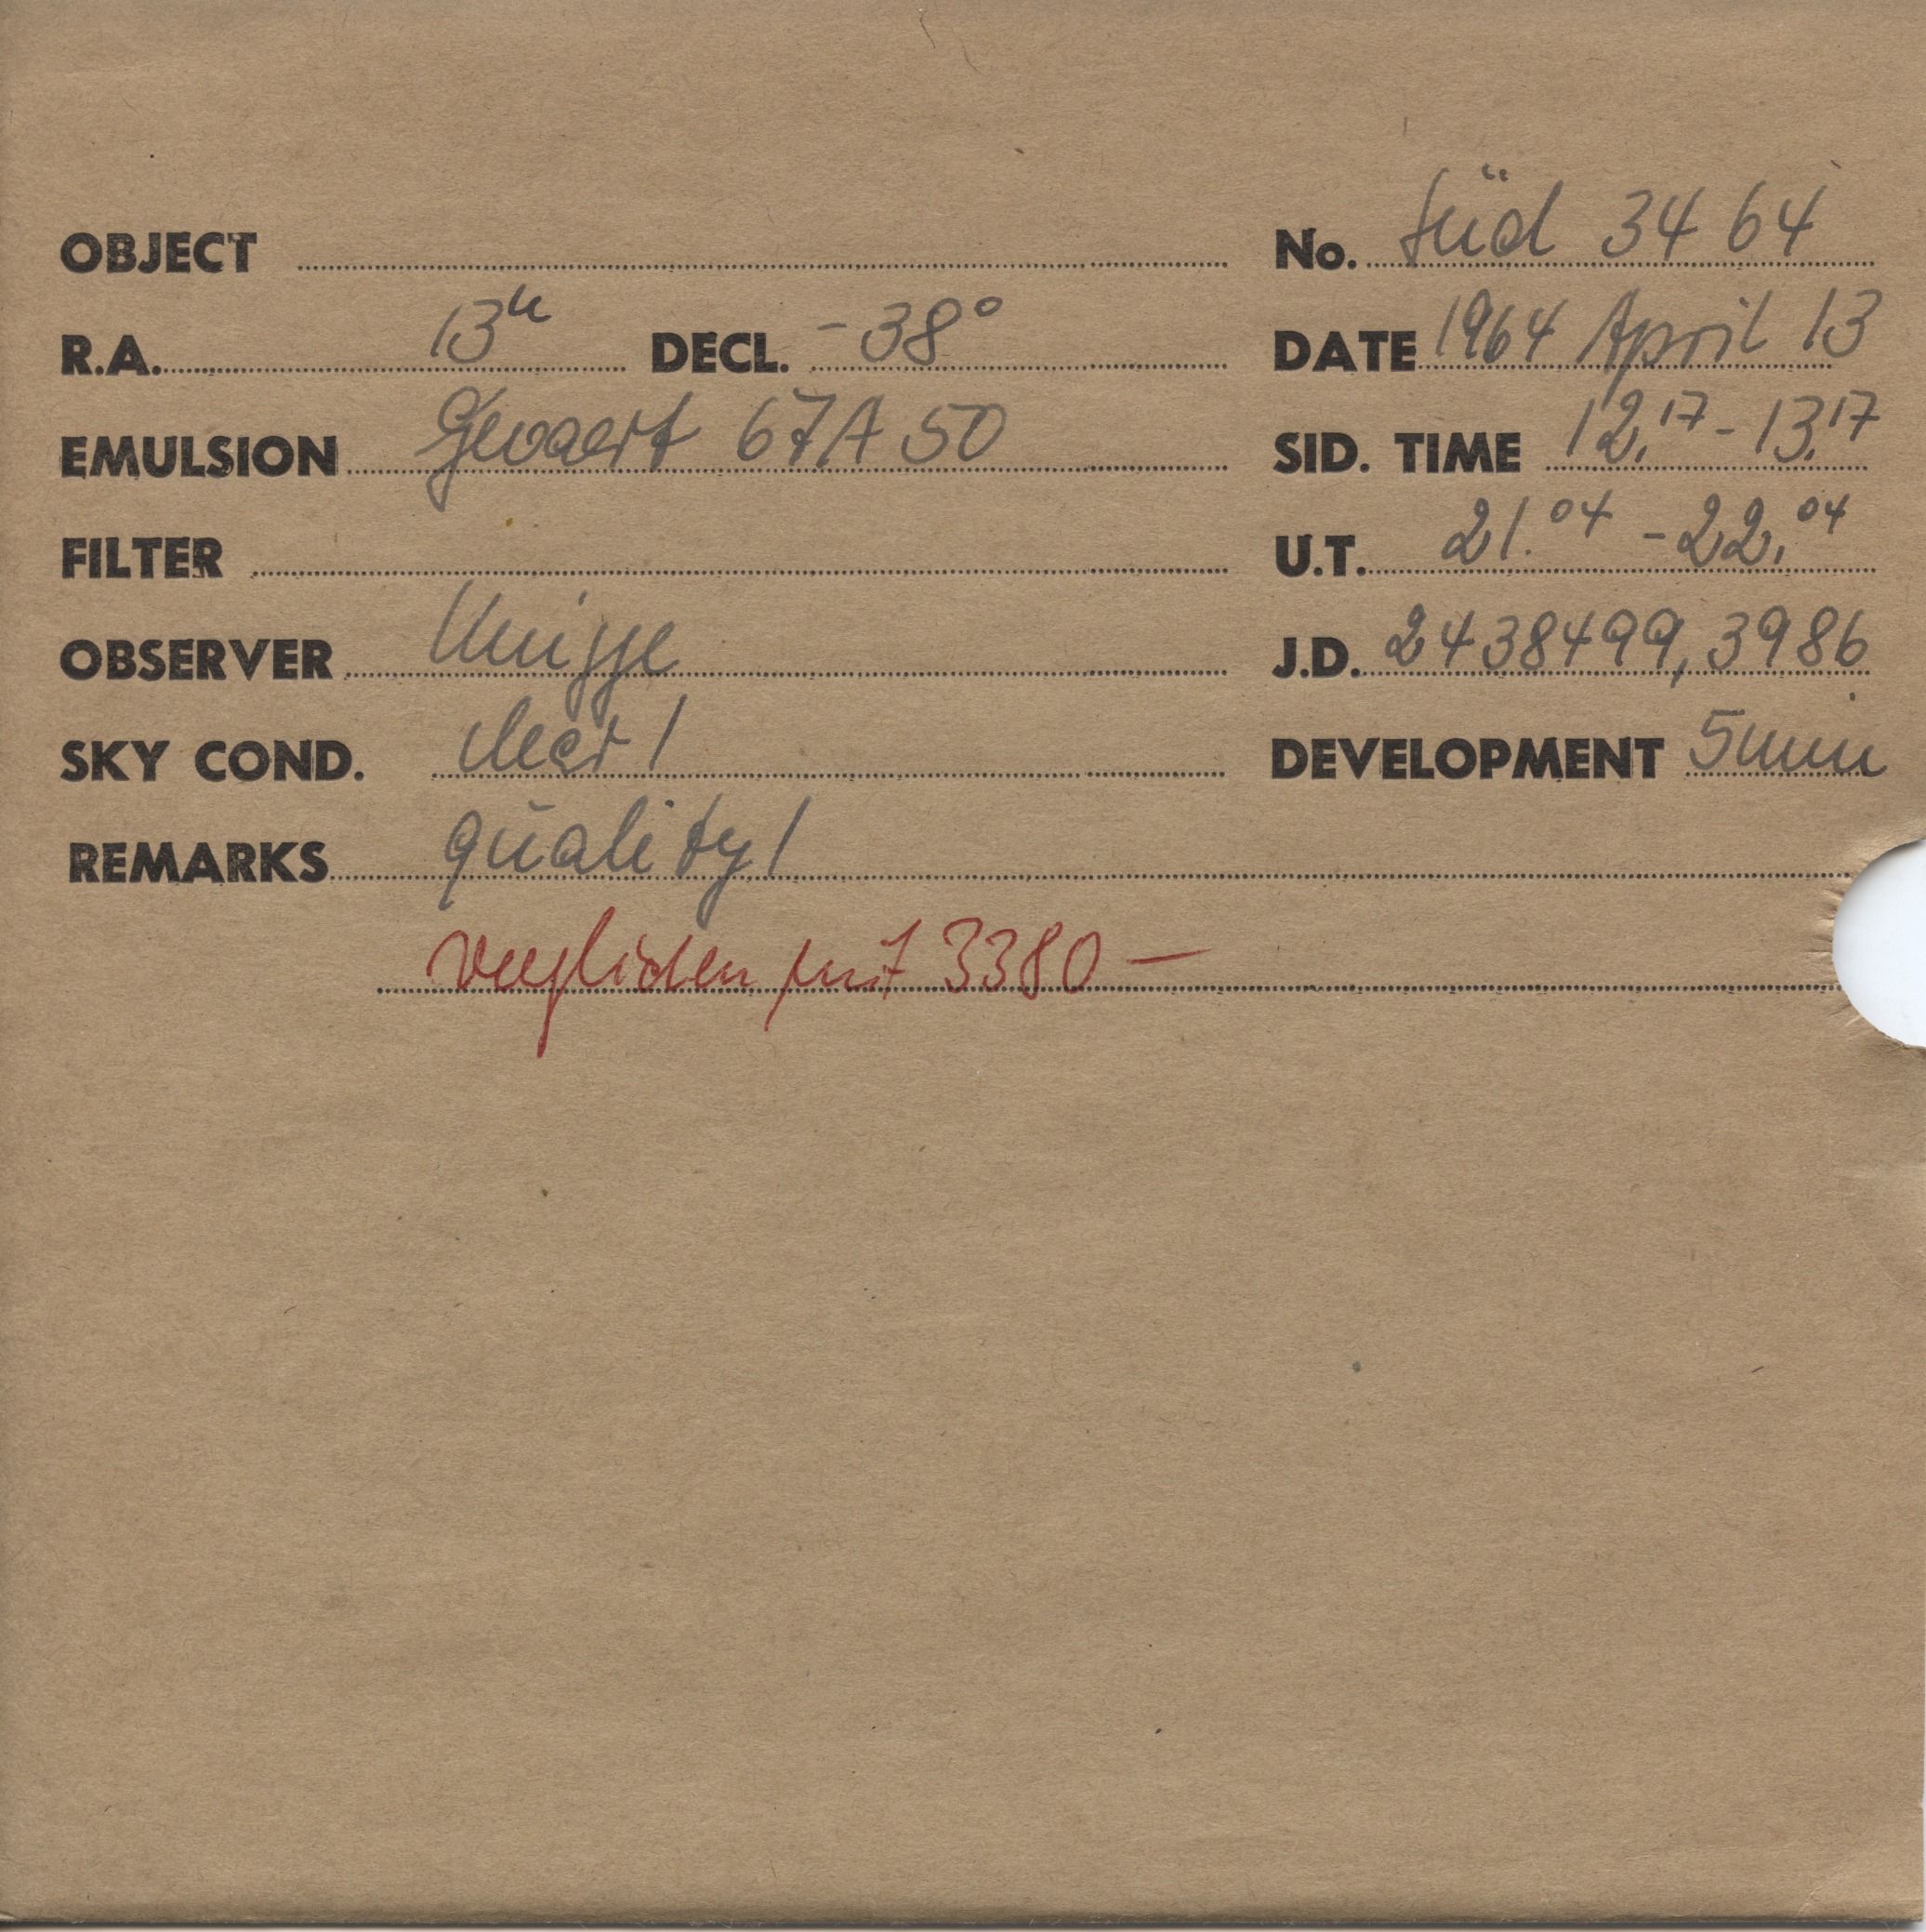 OBJECT No. Süd 3464
R.A. 13h DECL. -38° DATE 1964 April 13
EMULSION Gevaert 67A50 SID. TIME 12.17 - 13.17
FILTER U.T. 21.04 - 22.04
OBSERVER J.D. 2438499,3986
SKY COND. clear 1 DEVELOPMENT 5 min
REMARKS quality 1
verglichen mit 3380 —